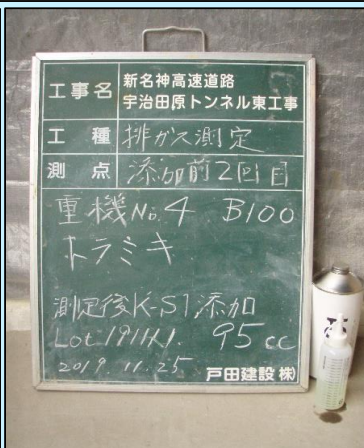 工事名 新名神高速道路
宇治田原トンネル東工事
工種 排ガス測定
測点 添加前2回目
重機No.4 B100
トラミキ
測定後K-S1添加
95cc
2019.11.25
戸田建設㈱